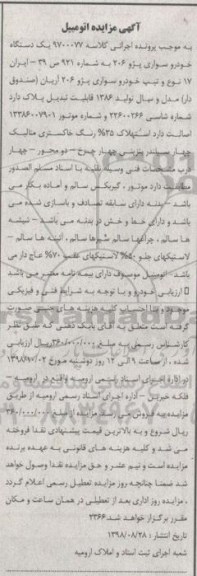 آگهی مزایده اتومبیل
به موجب پرونده اجرائی کلاسه ۹۷۰۰۰۷۷ یک دستگاه
خودرو سواری پژو ۲۰۶ به شماره ۹۲۱ ص ۳۹ – ایران
۱۷ نوع و تیپ خودرو سواری پژو ۲۰۶ آریان (صندوق
دار) مدل و سال تولید ۱۳۸۶ قابلیت تبدیل پلاک دارد
شماره شاسی ۲۲۶۰۰۲۶۶ و شماره موتور ۱۳۳۸۶۰۰۷۹۰۱
اصالت دارد استهلاک ۳۵% رنگ خاکستری متالیک
چهار سیلندر بنزینی چهار چرخ – دو محور – چهار
در مشخصات فنی وسیله نقلیه با اسناد مستند الصدور
مطابقت دارد موتور، گیربکس سالم و آماده بکار می
باشد – بدنه دارای سابقه تصادف و بازسازی شده می
باشد و دارای خط و خش در بدنه می باشد – شیشه
ها سالم، چراغها سالم سپرها سالم، آینه ها سالم –
لاستیکهای جلو ۵۰% لاستیکهای عقب ۷۰% عاج دار می
باشد – اتومبیل موصوف دارای بیمه نامه معتبر می باشد
ارزیابی خودرو با توجه به شرایط فنی و فیزیکی
گرفته است متعلق به آقای بابک که طبق نظر
کارشناس رسمی به مبلغ ریال ارزیابی
شده، از ساعت ۹ الی ۱۲ روز دوشنبه مورخ ۱۳۹۸/۹/۰۲
در اداره اجرای اسناد رسمی ارومیه واقع در ارومیه –
فلکه خیرین – اداره اجرای اسناد رسمی ارومیه از طریق
مزایده به فروش می رسد مزایده از مبلغ
ریال شروع و به بالاترین قیمت پیشنهادی نقدا فروخته
می شد و کلیه هزینه های قانونی به عهده برنده
مزایده است و نیم عشر و حق مزایده نقدا وصول خواهد
شد ضمنا چنانچه روز مزایده تعطیل رسمی اعلام گردد
، مزایده روز اداری بعد از تعطیلی در همان ساعت و مکان
مقرر برگزار خواهد شد. ۲۳۶۶
تاریخ انتشار: ۱۳۹۸/۰۸/۲۸
شعبه اجرای ثبت اسناد و املاک ارومیه